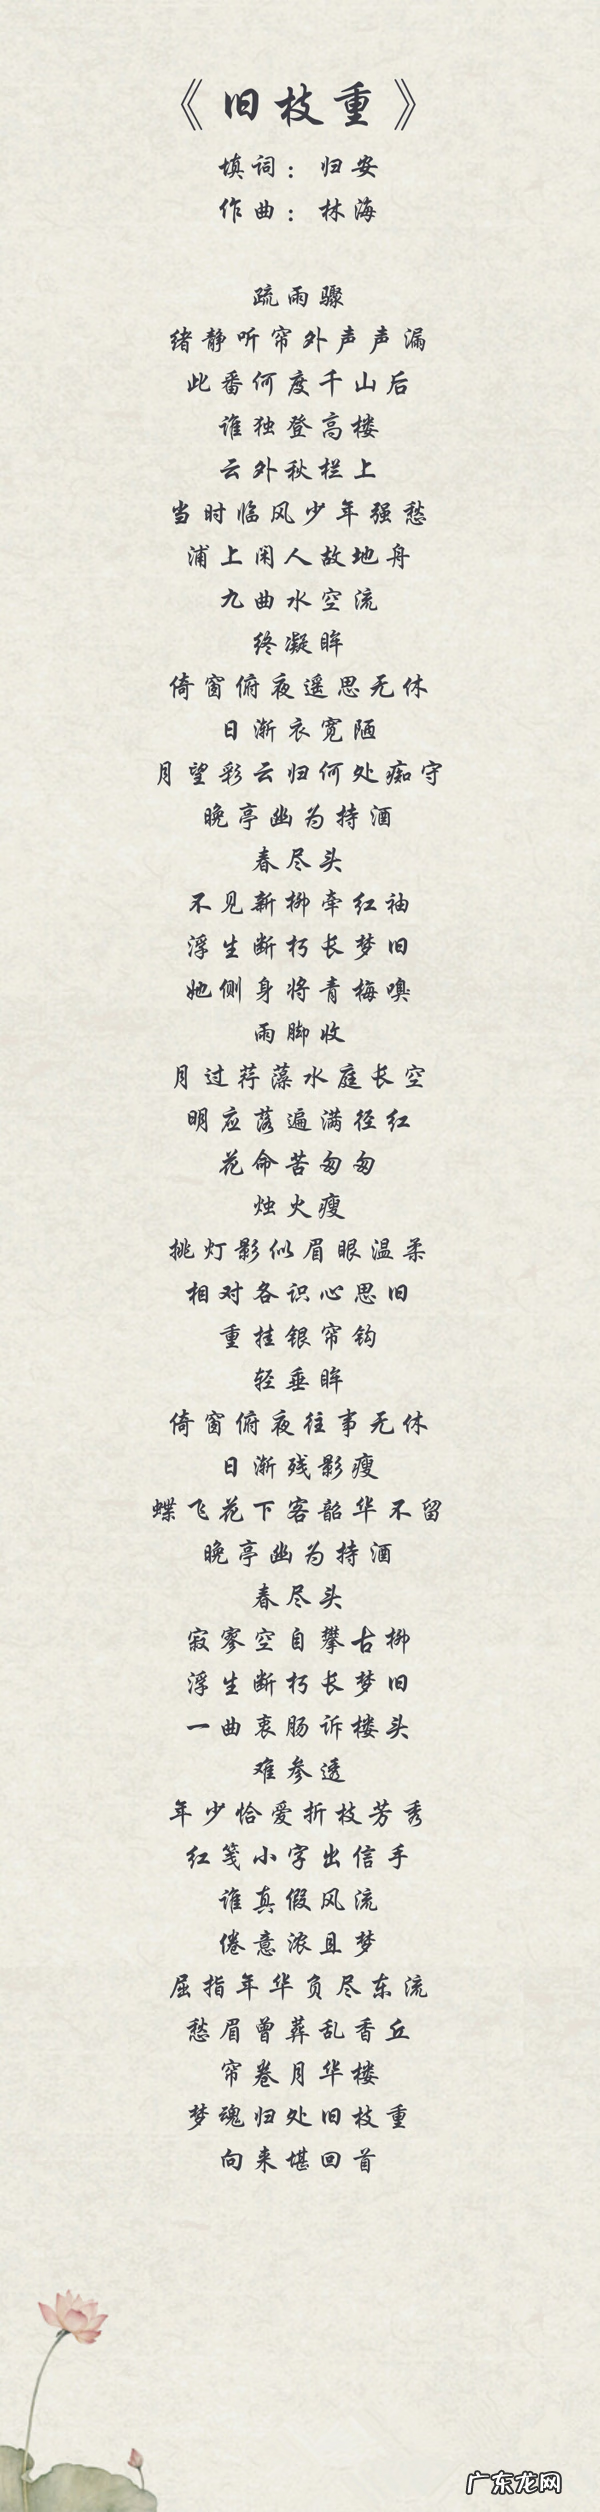 《旧枝重》
填词：归安
作曲：林海
疏雨骤
绪静听帘外声声漏
此番何度千山后
谁独登高楼
云外秋栏上
当时临风少年强愁
浦上闲人故地舟
九曲水空流
终凝眸
倚窗俯夜遥思无休
日渐衣宽陋
月望彩云归何处痴守
晚亭幽为持酒
春尽头
不见新柳牵红袖
浮生断朽长梦旧
她侧身将青梅嗅
雨脚收
月过荇藻水庭长空
明应落遍满径红
花命苦匆匆
烛火瘦
挑灯影似眉眼温柔
相对各识心思旧
重挂银帘钩
轻垂眸
倚窗俯夜往事无休
日渐残影瘦
蝶飞花下客韶华不留
晚亭幽为持酒
春尽头
寂寥空自攀古柳
浮生断朽长梦旧
一曲衷肠诉楼头
难参透
年少恰爱折枝芳秀
红笺小字出信手
谁真假风流
倦意浓且梦
屈指年华负尽东流
愁眉曾葬乱香丘
帘卷月华楼
梦魂归处旧枝重
向来堪回首
广东龙网